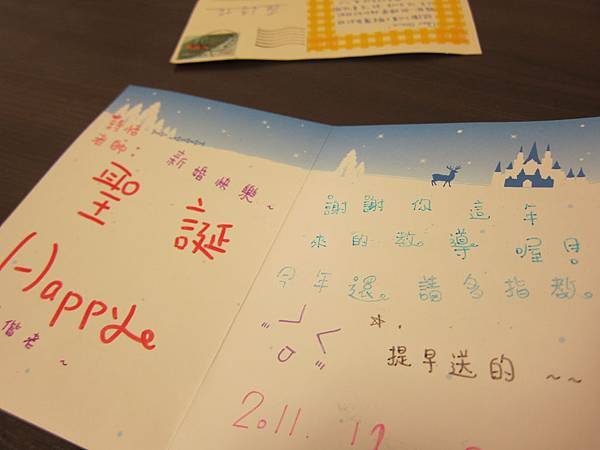 老師：
新婚快樂~
聖
誕
Happy
偕老~
謝謝你這年
來的教導喔！
今年還請多指教。
※.
提早送的 ~~
2011. 12